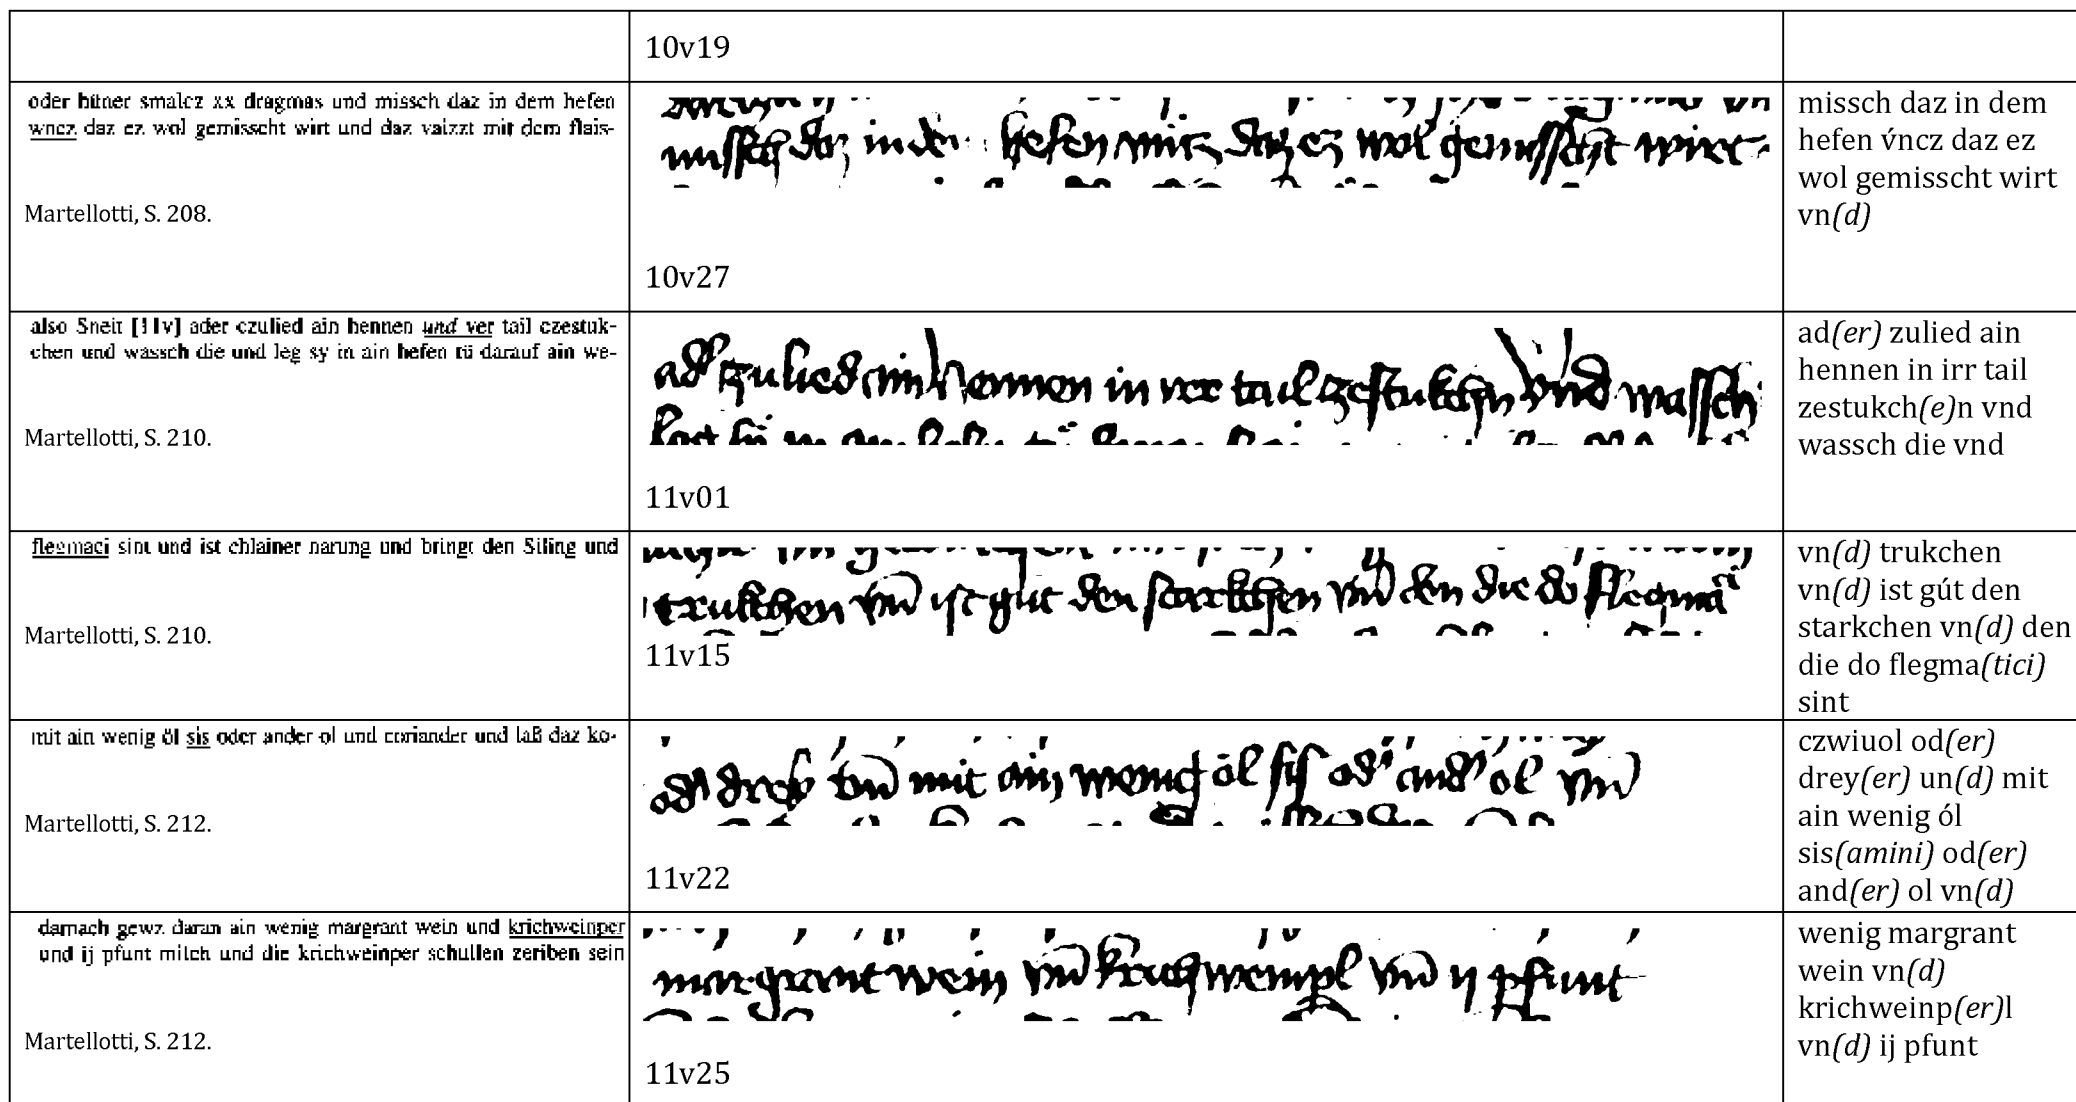 10v19
oder hüner smalcz xx dragmas und missch daz in dem hefen
wncz daz ez wol gemisscht wirt und daz vaizzt mit dem flais-
Martellotti, S. 208.
missch daz in den hefen vncz daz ez wol gemisscht wirt
10v27
missch daz in dem
hefen v́ncz daz ez
wol gemisscht wirt
vn(d)
also Sneit [11v] ader czulied ain hennen und ver tail czestuk-
chen und wassch die und leg sy in ain hefen tü darauf ain we-
Martellotti, S. 210.
ad zulied ain hennen in irr tail zestukchn vnd wassch
11v01
ad(er) zulied ain
hennen in irr tail
zestukch(e)n vnd
wassch die vnd
flegmaci sint und ist chlainer narung und bringt den Siling und
Martellotti, S. 210.
trukchen vn̄ ist gut den starkchen vn̄ den die do flegma
11v15
vn(d) trukchen
vn(d) ist gút den
starkchen vn(d) den
die do flegma(tici)
sint
mit ain wenig öl sis oder ander ol und coriander und laß daz ko-
Martellotti, S. 212.
od drey vn̄ mit ain wenig öl sis od and ol vn̄
11v22
czwiuol od(er)
drey(er) un(d) mit
ain wenig ól
sis(amini) od(er)
and(er) ol vn(d)
darnach gewz daran ain wenig margrant wein und krichweinper
und ij pfunt milch und die krichweinper schullen zeriben sein
Martellotti, S. 212.
margrant wein vn̄ krichweinpl vn̄ ij pfunt
11v25
wenig margrant
wein vn(d)
krichweinp(er)l
vn(d) ij pfunt